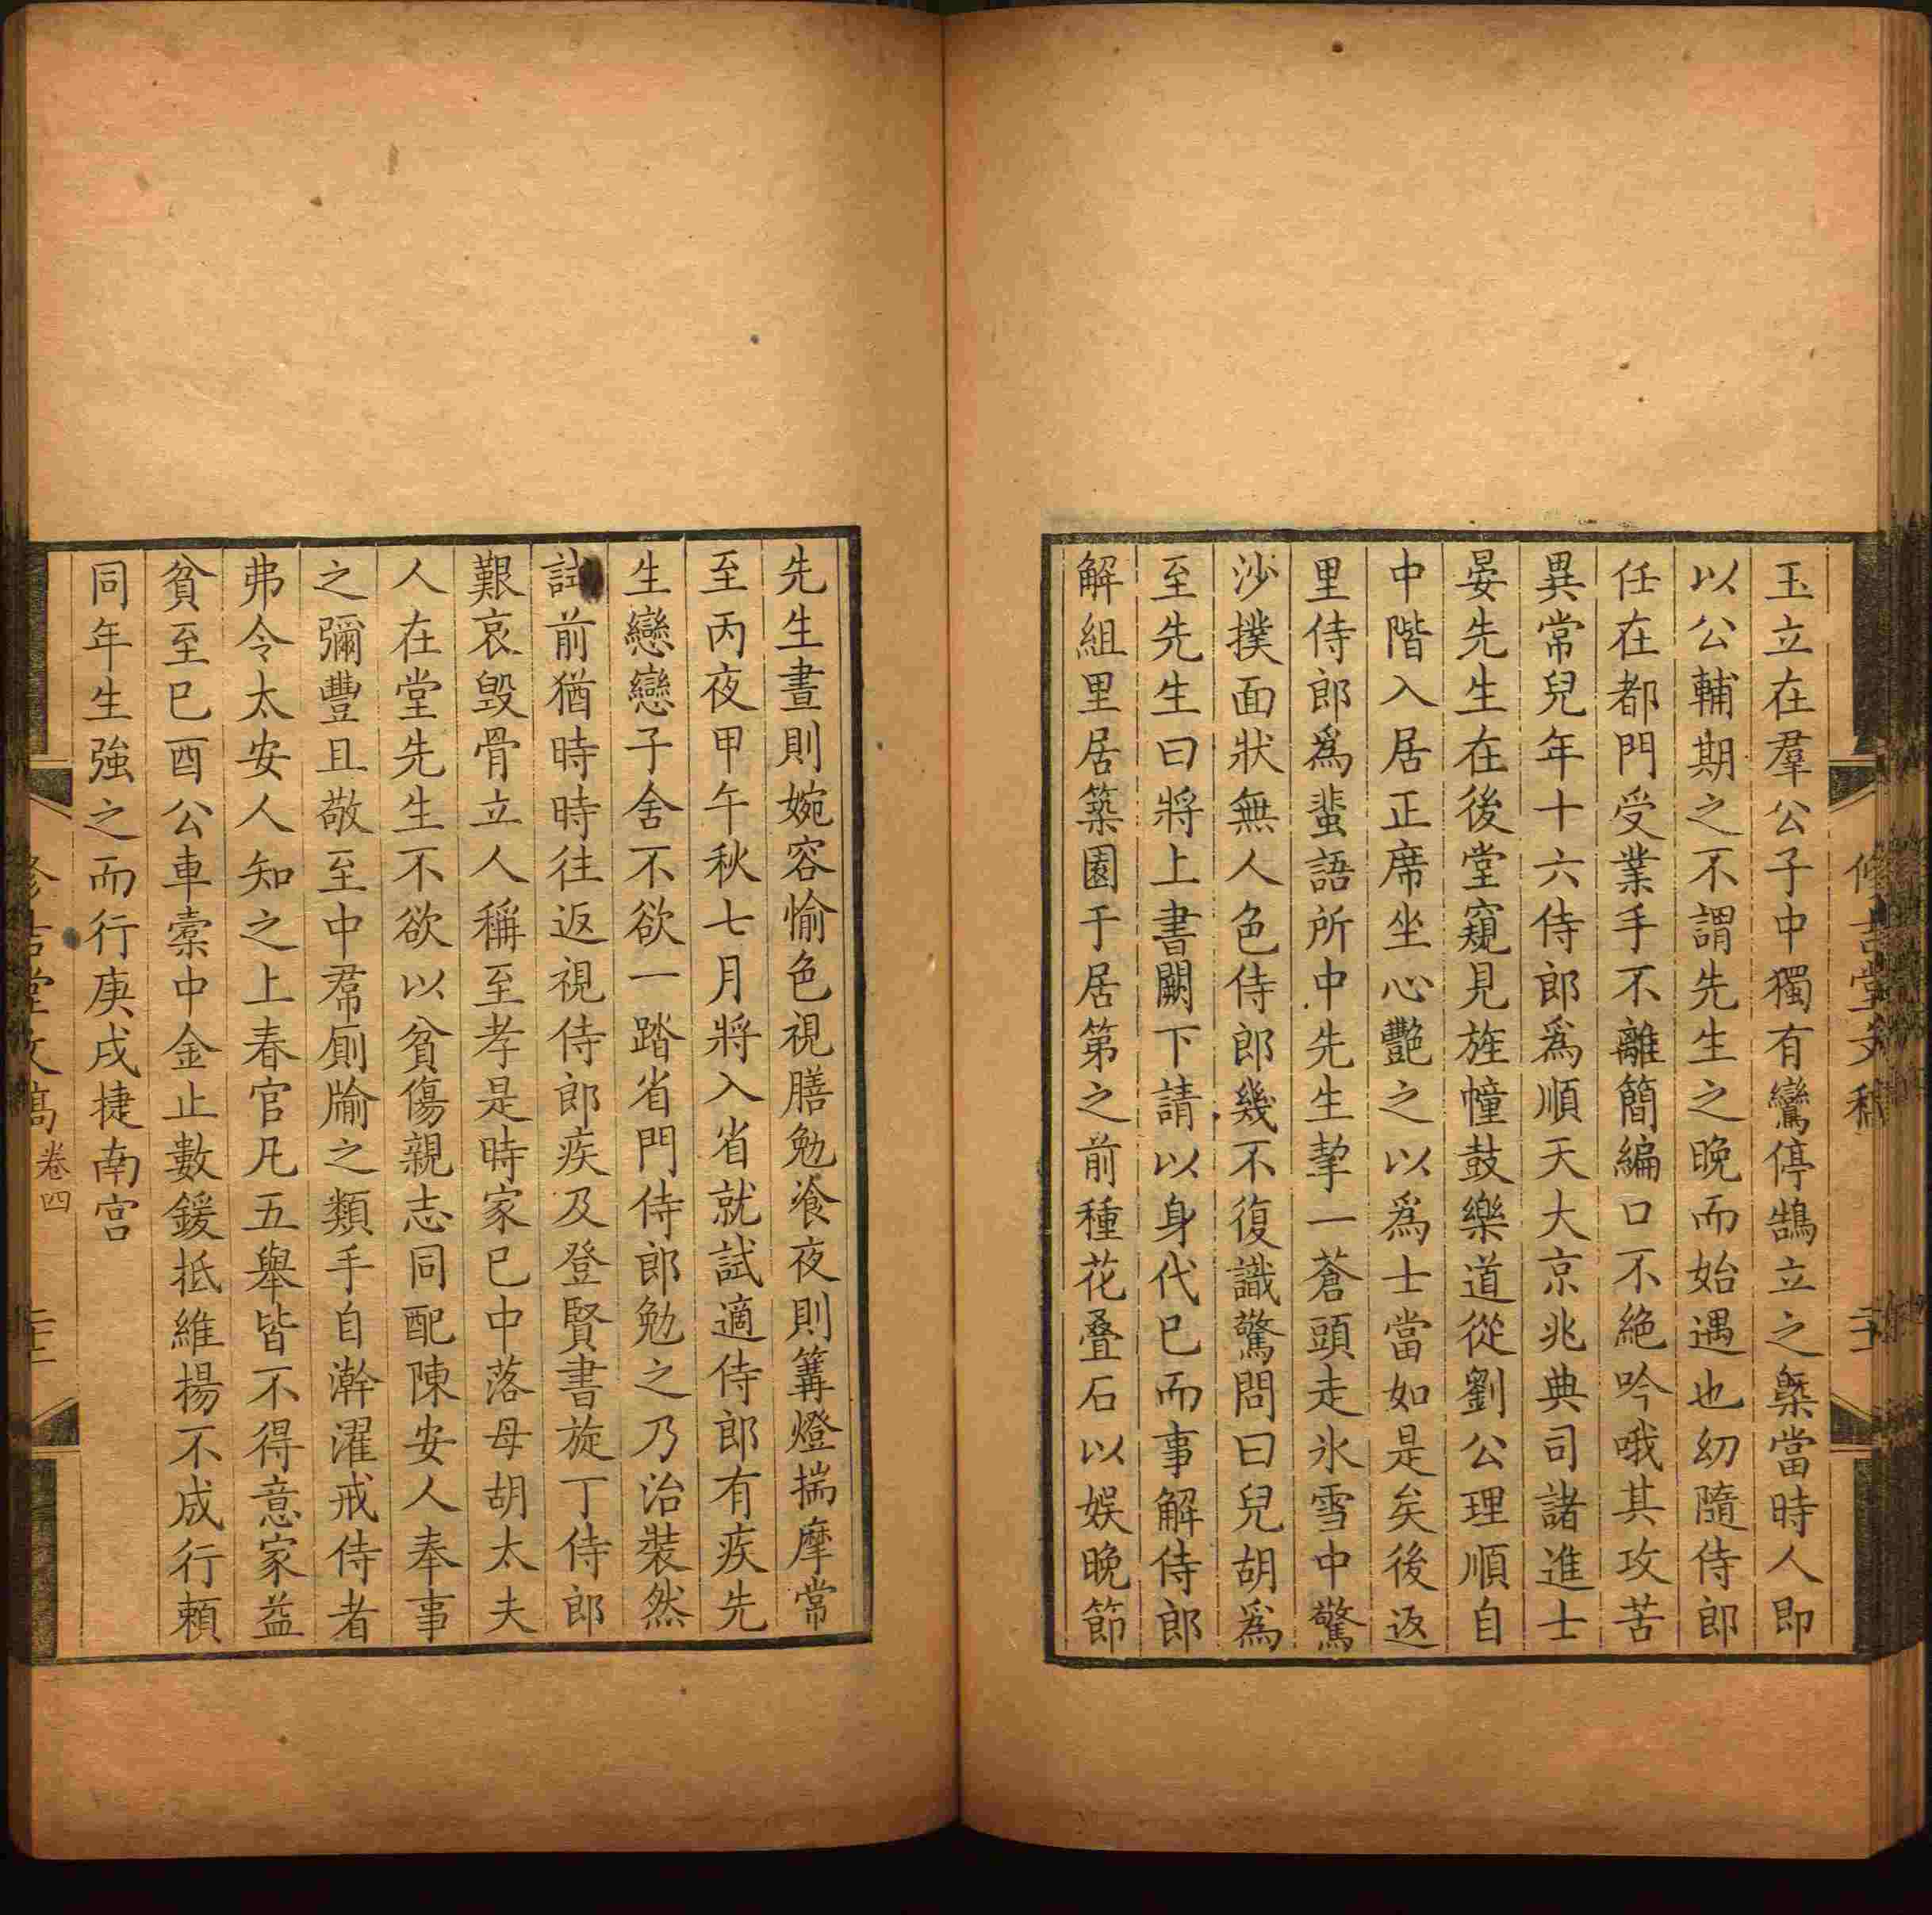 玉立在羣公子中獨有鸞停鵠立之槩當時人即
以公輔期之不謂先生之晚而始遇也幼隨侍郎
任在都門受業手不離簡編口不絶吟哦其攻苦
異常兒年十六侍郎爲順天大京兆典司諸進士
晏先生在後堂窺見旌幢鼓樂道從劉公理順自
中階入居正席坐心艷之以爲士當如是矣後返
里侍郎爲蜚語所中先生挈一蒼頭走氷雪中驚
沙撲面狀無人色侍郎幾不復識驚問曰兒胡爲
至先生曰將上書闕下請以身代已而事解侍郎
解組里居築園于居第之前種花叠石以娱晚節
先生晝則婉容愉色視膳勉飡夜則篝燈揣摩常
至丙夜甲午秋七月將入省就試適侍郎有疾先
生戀戀子舍不欲一踏省門侍郎勉之乃治裝然
試前猶時時往返視侍郎疾及登賢書旋丁侍郎
艱哀毁骨立人稱至孝是時家已中落母胡太夫
人在堂先生不欲以貧傷親志同配陳安人奉事
之彌豐且敬至中帬厠牏之類手自澣濯戒侍者
弗令太安人知之上春官凡五舉皆不得意家益
貧至已酉公車橐中金止數鍰抵維揚不成行頼
同年生強之而行庚戌捷南宮
卷四